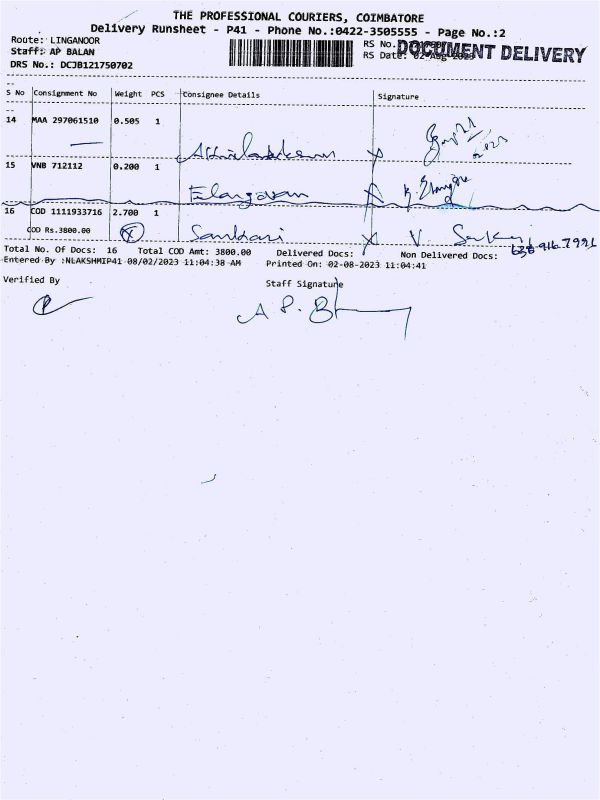 THE PROFESSIONAL COURIERS, COIMBATORE
Delivery Runsheet - P41 - Phone No.:0422-3505555 - Page No.:2
Route: LINGANOOR
RS No.
DOCUMENT DELIVERY
Staff: AP BALAN
RS Date: 02-Aug-2023
DRS No.: DCJB121750702
S No Consignment No Weight PCS Consignee Details Signature
14 MAA 297061510 0.505 1
15 VNB 712112 0.200 1
Elangovan
16 COD 1111933716 2.700 1
COD Rs.3800.00
Sankari
Total No. Of Docs: 16 Total COD Amt: 3800.00 Delivered Docs: Non Delivered Docs:
Entered By :NLAKSHMIP41 08/02/2023 11:04:38 AM Printed On: 02-08-2023 11:04:41
Verified By
Staff Signature